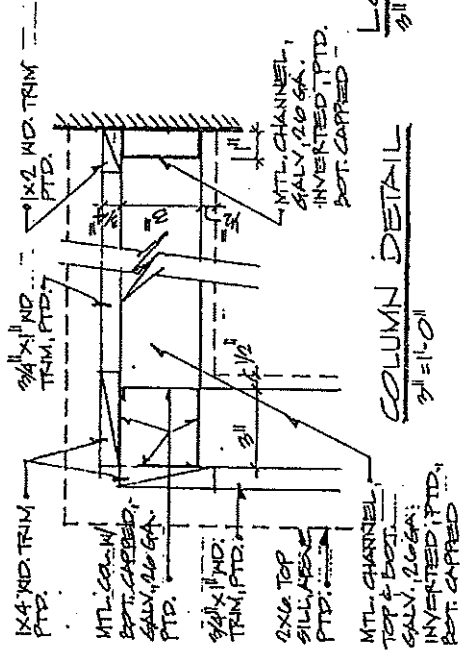 1X4 WD. TRIM
PTD.
MTL. COL. W/
BOT. CAPPED,
GALV, 26 GA.
PTD.
3/4" X 1" WD.
TRIM, PTD.
2X6 TOP
PTD.
MTL. CHANNEL,
TOP & BOT.
GALV, 26 GA.
INVERTED, PTD.,
BOT. CAPPED
3/4" X 1" WD.
TRIM, PTD.
1X2 WD. TRIM
PTD.
3/4"
3"
1/2"
1"
3"
1/2"
MTL. CHANNEL,
GALV, 26 GA.
INVERTED, PTD.
BOT. CAPPED
COLUMN DETAIL
3" = 1'-0"
3"